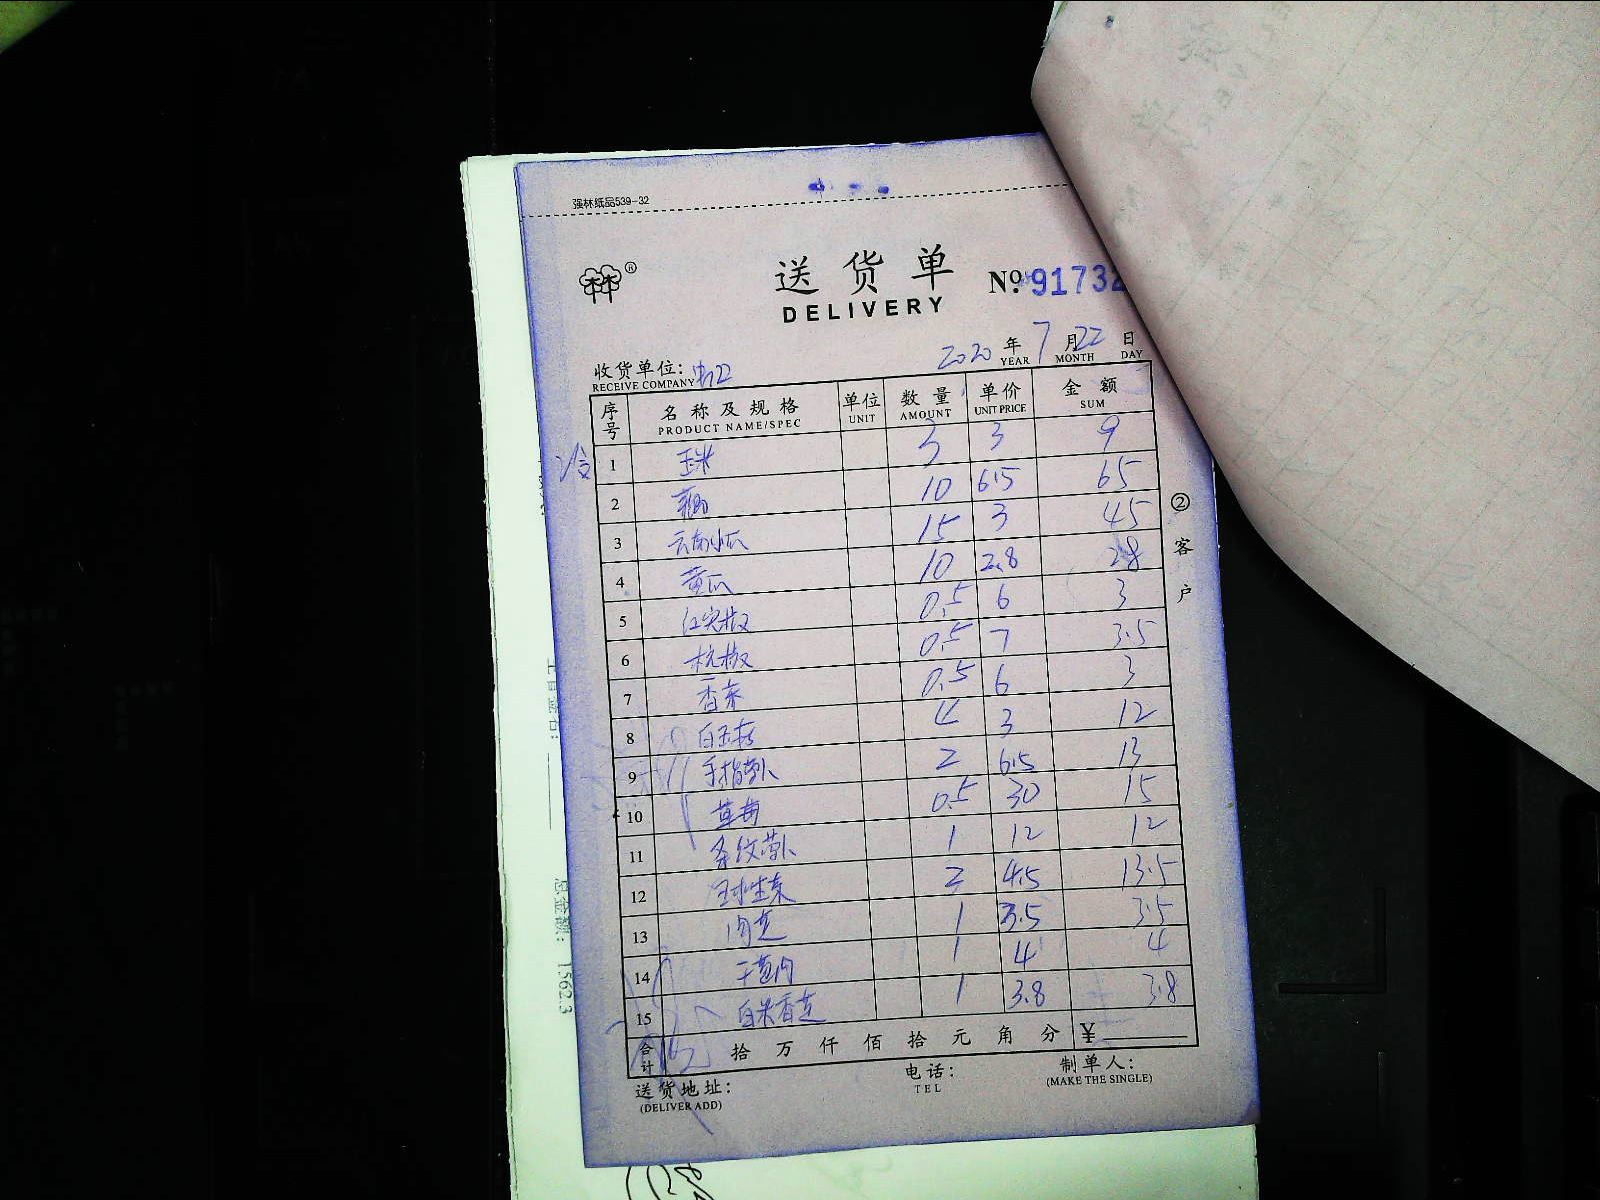 强林纸品539-32
林林®
送货单
DELIVERY
No. 91732
2020年7月22日
YEAR MONTH DAY
收货单位:
RECEIVE COMPANY
序号 名称及规格 单位 数量 单价 金额
PRODUCT NAME/SPEC UNIT AMOUNT UNIT PRICE SUM
1 玉米 3 3 9
2 10 6.5 65
3 云南小瓜 15 3 45
4 黄瓜 10 2.8 28
5 红尖椒 0.5 6 3
6 杭椒 0.5 7 3.5
7 香菜 0.5 6 3
8 白玉菇 4 3 12
9 手指萝卜 2 6.5 13
10 草莓 0.5 30 15
11 条纹萝卜 1 12 12
12 球生菜 4.5 13.5
13 1 3.5 3.5
14 1 4 4
15 1 3.8 3.8
合计 拾 万 仟 佰 拾 元 角 分 ¥
送货地址: 电话: 制单人:
(DELIVER ADD) TEL (MAKE THE SINGLE)
②客户
总金额: 1562.3